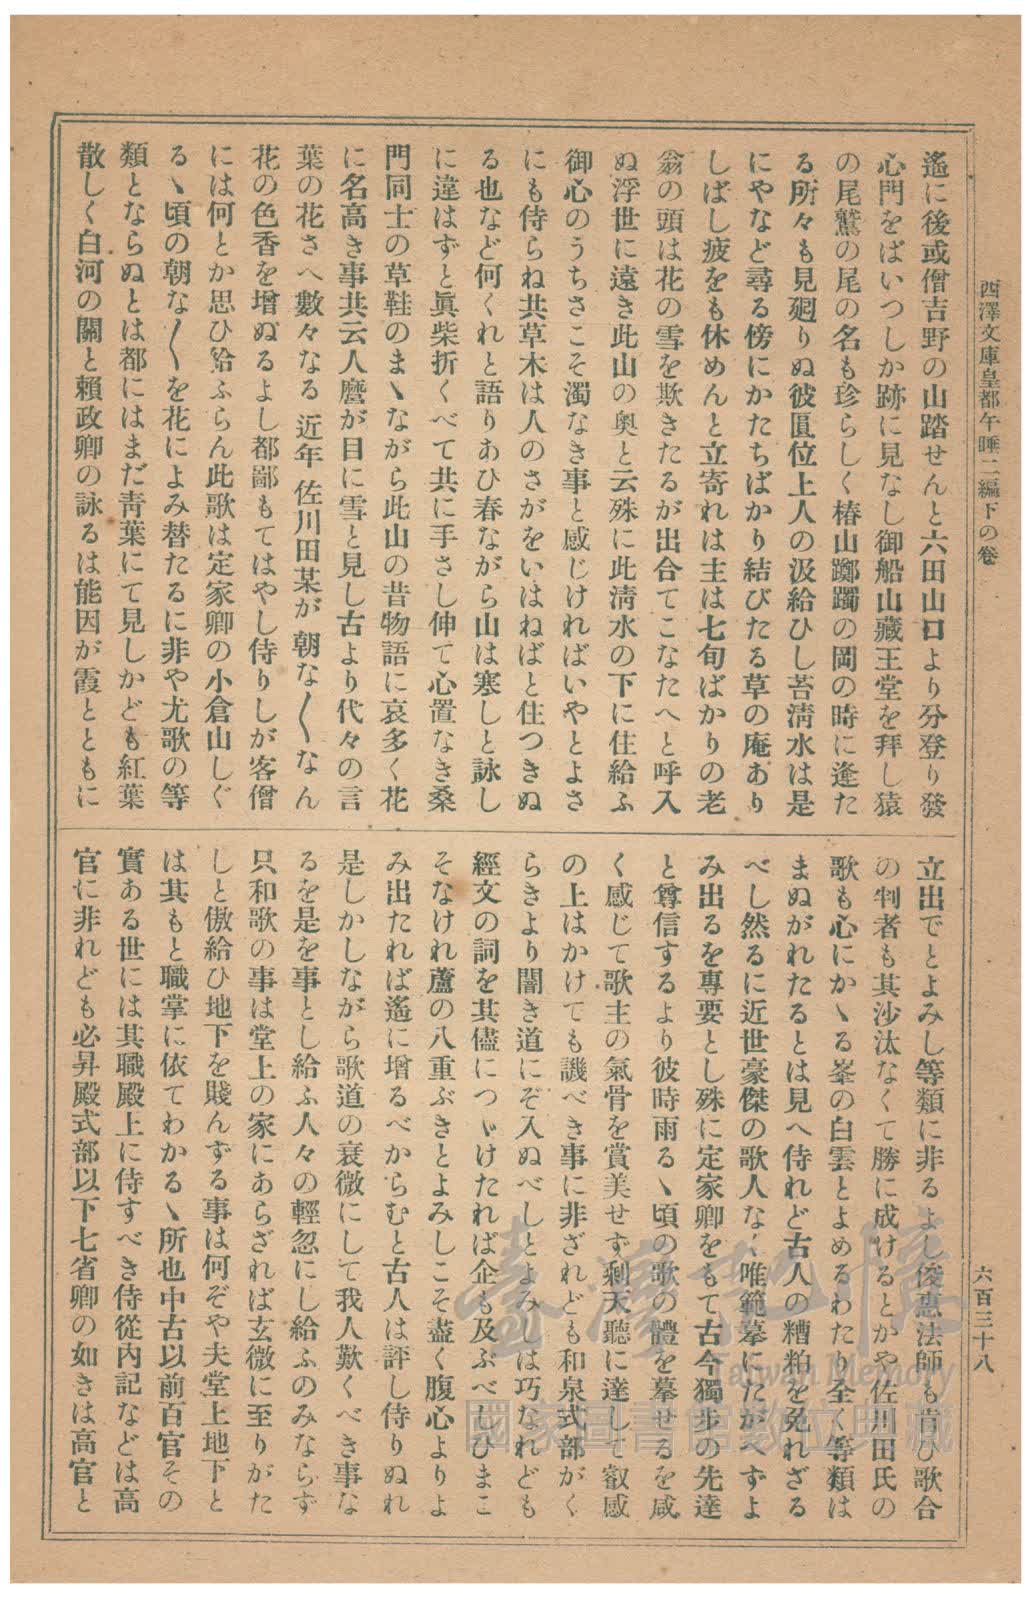 西澤文庫皇都午睡二編下の卷
六百三十八
遙に後或僧吉野の山踏せんと六田山口より分登り發
心門をばいつしか跡に見なし御船山藏王堂を拜し猿
の尾鷲の尾の名も珍らしく椿山躑躅の岡の時に逢た
る所々も見廻りぬ彼圓位上人の汲給ひし苔淸水は是
にやなど尋る傍にかたちばかり結びたる草の庵あり
しばし疲をも休めんと立寄れは主は七旬ばかりの老
翁の頭は花の雪を欺きたるが出合てこなたへと呼入
ぬ浮世に遠き此山の奧と云殊に此淸水の下に住給ふ
御心のうちさこそ濁なき事と感じければいやとよさ
にも侍らね共草木は人のさがをいはねばと住つきぬ
る也など何くれと語りあひ春ながら山は寒しと詠し
に違はずと眞柴折くべて共に手さし伸て心置なき桑
門同士の草鞋のまゝながら此山の昔物語に哀多く花
に名高き事共云人麿が目に雪と見し古より代々の言
葉の花さへ數々なる近年佐川田某が朝な〳〵なん
花の色香を增ぬるよし都鄙もてはやし侍りしが客僧
には何とか思ひ給ふらん此歌は定家卿の小倉山しぐ
るゝ頃の朝な〳〵を花によみ替たるに非や尤歌の等
類とならぬとは都にはまだ靑葉にて見しかども紅葉
散しく白河の關と賴政卿の詠るは能因が霞とともに
立出でとよみし等類に非るよし俊惠法師も昔ひ歌合
の判者も其沙汰なくて勝に成けるとかや佐川田氏の
歌も心にかゝる峯の白雲とよめるわたり全く等類は
まぬがれたるとは見へ侍れど古人の糟粕を免れざる
べし然るに近世豪傑の歌人なく唯範摹にたがへずよ
み出るを專要とし殊に定家卿をもて古今獨步の先達
と尊信するより彼時雨るゝ頃の歌の體を摹せるを咸
く感じて歌主の氣骨を賞美せず剩天聽に達して叡感
の上はかけても譏べき事に非ざれども和泉式部がく
らきより闇き道にぞ入ぬべしとよみしは巧なれども
經文の詞を其儘につゞけたれば企も及ぶべしひまこ
そなけれ蘆の八重ぶきとよみしこそ盡く腹心よりよ
み出たれば遙に增るべからむと古人は評し侍りぬれ
是しかしながら歌道の衰微にして我人歎くべき事な
るを是を事とし給ふ人々の輕忽にし給ふのみならず
只和歌の事は堂上の家にあらざれば玄微に至りがた
しと傲給ひ地下を賤んずる事は何ぞや夫堂上地下と
は其もと職掌に依てわかるゝ所也中古以前百官その
實ある世には其職殿上に侍すべき侍從內記などは高
官に非れども必昇殿式部以下七省卿の如きは高官と
臺灣記憶
Taiwan Memory
國家圖書館數位典藏